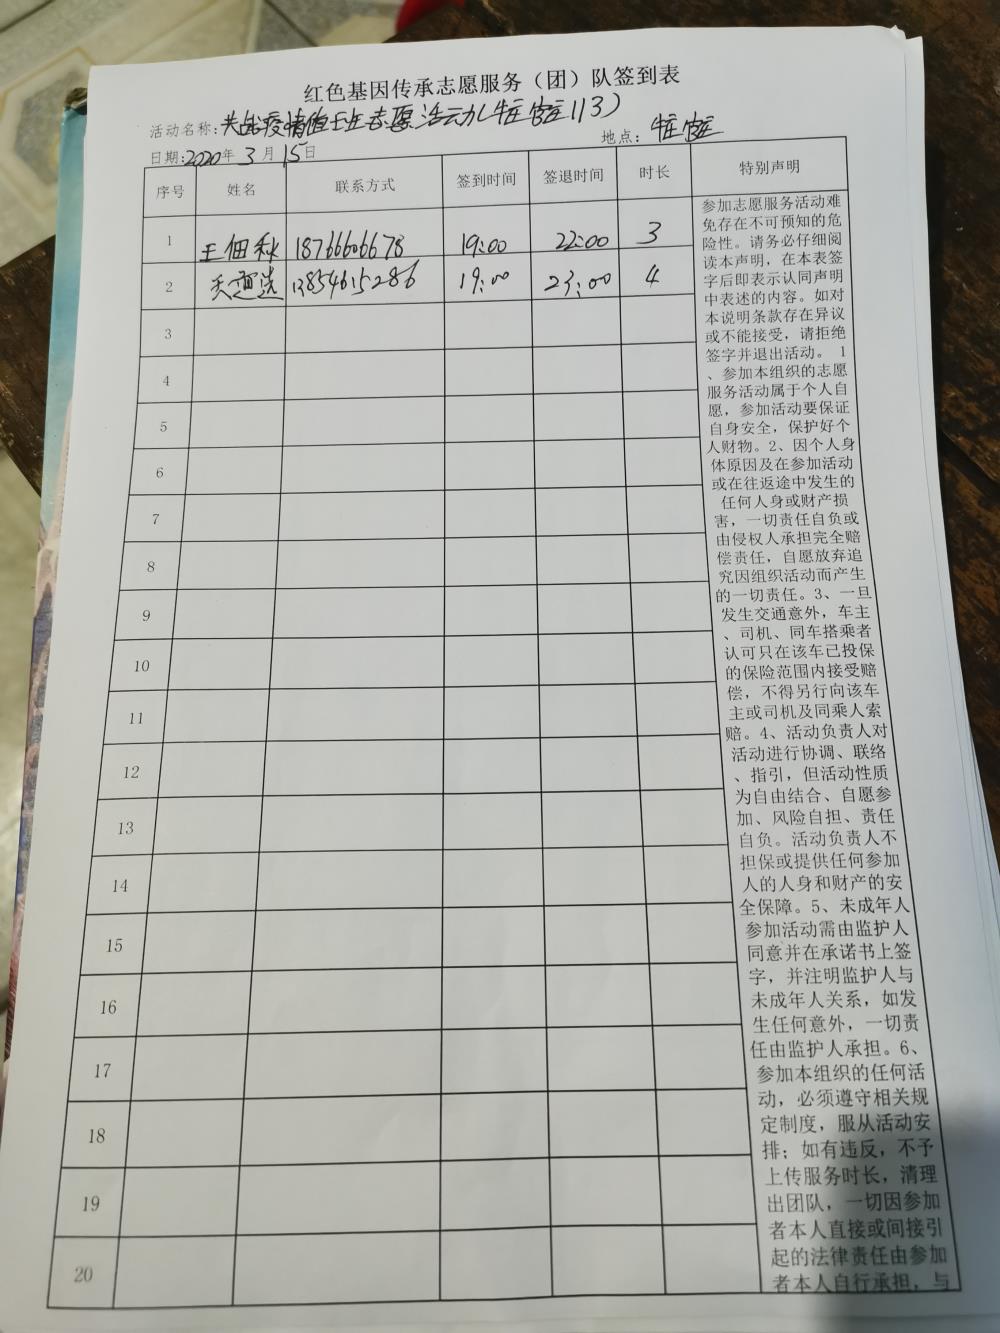 红色基因传承志愿服务（团）队签到表
活动名称：共战疫情值班志愿活动（牛庄 113）
地点：牛庄
日期：2020年 3 月 15日
序号 姓名 联系方式 签到时间 签退时间 时长 特别声明
1 王佃秋 18766606678 19:00 22:00 3
2 13854615286 19:00 23:00 4
3
4
5
6
7
8
9
10
11
12
13
14
15
16
17
18
19
20
参加志愿服务活动难
免存在不可预知的危
险性。请务必仔细阅
读本声明，在本表签
字后即表示认同声明
中表述的内容。如对
本说明条款存在异议
或不能接受，请拒绝
签字并退出活动。 1
、参加本组织的志愿
服务活动属于个人自
愿，参加活动要保证
自身安全，保护好个
人财物。2、因个人身
体原因及在参加活动
或在往返途中发生的
任何人身或财产损
害，一切责任自负或
由侵权人承担完全赔
偿责任，自愿放弃追
究因组织活动而产生
的一切责任。3、一旦
发生交通意外，车主
、司机、同车搭乘者
认可只在该车已投保
的保险范围内接受赔
偿，不得另行向该车
主或司机及同乘人索
赔。4、活动负责人对
活动进行协调、联络
、指引，但活动性质
为自由结合、自愿参
加、风险自担、责任
自负。活动负责人不
担保或提供任何参加
人的人身和财产的安
全保障。5、未成年人
参加活动需由监护人
同意并在承诺书上签
字，并注明监护人与
未成年人关系，如发
生任何意外，一切责
任由监护人承担。6、
参加本组织的任何活
动，必须遵守相关规
定制度，服从活动安
排；如有违反，不予
上传服务时长，清理
出团队，一切因参加
者本人直接或间接引
起的法律责任由参加
者本人自行承担，与